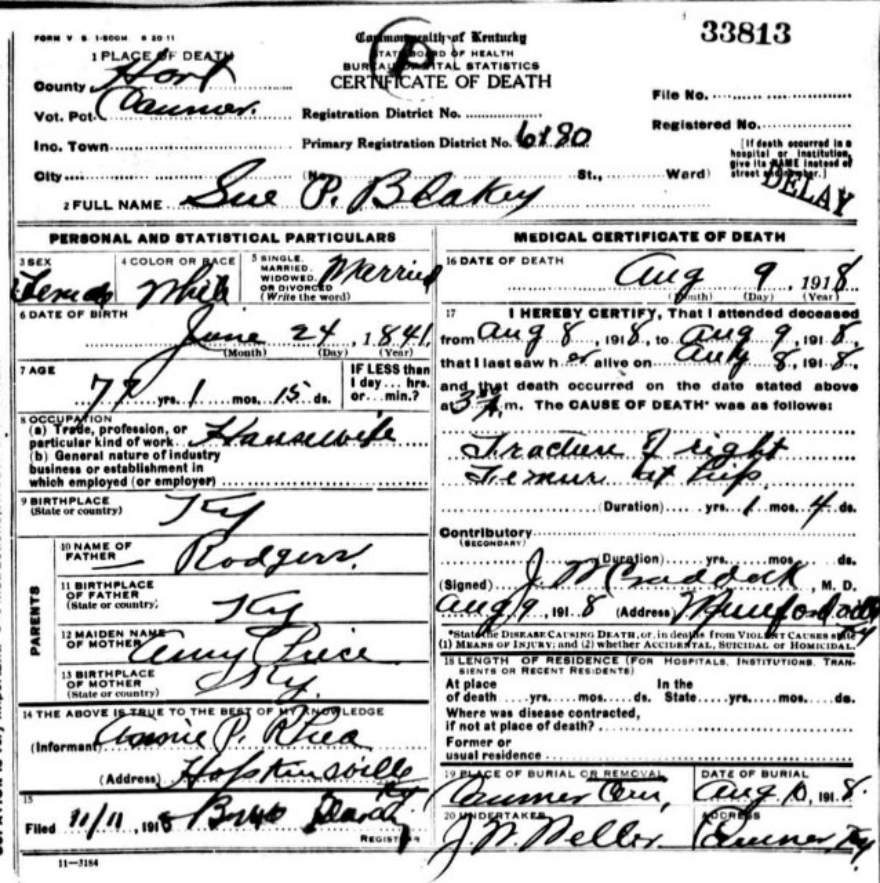 FORM V. S. 1-500M 8 20 11
Commonwealth of Kentucky
STATE BOARD OF HEALTH
BUREAU OF VITAL STATISTICS
CERTIFICATE OF DEATH
33813
1 PLACE OF DEATH
County Hart
Vot. Pct. Canmer.
Inc. Town
City
Registration District No.
Primary Registration District No. 6180
(No. St., Ward)
File No.
Registered No.
[If death occurred in a
hospital or institution,
give its NAME instead of
street and number.]
DELAY
2 FULL NAME Sue P. Blakey
PERSONAL AND STATISTICAL PARTICULARS
3 SEX
Female
4 COLOR OR RACE
White
5 SINGLE,
MARRIED,
WIDOWED,
OR DIVORCED
(Write the word)
Married
6 DATE OF BIRTH
June 24, 1841
(Month) (Day) (Year)
7 AGE
77 yrs. 1 mos. 15 ds.
IF LESS than
1 day... hrs.
or... min.?
8 OCCUPATION
(a) Trade, profession, or
particular kind of work Housewife
(b) General nature of industry
business or establishment in
which employed (or employer)
9 BIRTHPLACE
(State or country)
Ky
PARENTS
10 NAME OF
FATHER
— Rodgers.
11 BIRTHPLACE
OF FATHER
(State or country)
Ky
12 MAIDEN NAME
OF MOTHER
Amy Price
13 BIRTHPLACE
OF MOTHER
(State or country)
Ky.
14 THE ABOVE IS TRUE TO THE BEST OF MY KNOWLEDGE
(Informant) Annie P. Rhea
(Address) Hopkinsville
Ky
15
Filed 11/11, 1918
REGISTRAR
11—3184
MEDICAL CERTIFICATE OF DEATH
16 DATE OF DEATH
Aug 9, 1918
(Month) (Day) (Year)
17 I HEREBY CERTIFY, That I attended deceased
from Aug 8, 1918, to Aug 9, 1918.
that I last saw her alive on Aug 8, 1918.
and that death occurred on the date stated above
at 3 A.m. The CAUSE OF DEATH* was as follows:
Fracture of right
Femur at hip
(Duration) yrs. 1 mos. 4 ds.
Contributory
(SECONDARY)
(Duration) yrs. mos. ds.
(Signed) J M Craddock, M. D.
Aug 9, 1918 (Address) Munfordville
Ky
*State the DISEASE CAUSING DEATH, or, in deaths from VIOLENT CAUSES state
(1) MEANS OF INJURY; and (2) whether ACCIDENTAL, SUICIDAL or HOMICIDAL.
18 LENGTH OF RESIDENCE (FOR HOSPITALS, INSTITUTIONS, TRAN-
SIENTS OR RECENT RESIDENTS)
At place In the
of death yrs. mos. ds. State yrs. mos. ds.
Where was disease contracted,
if not at place of death?
Former or
usual residence
19 PLACE OF BURIAL OR REMOVAL
Canmer Cem,
DATE OF BURIAL
Aug 10, 1918.
20 UNDERTAKER
J. W. Weller.
ADDRESS
Canmer Ky.